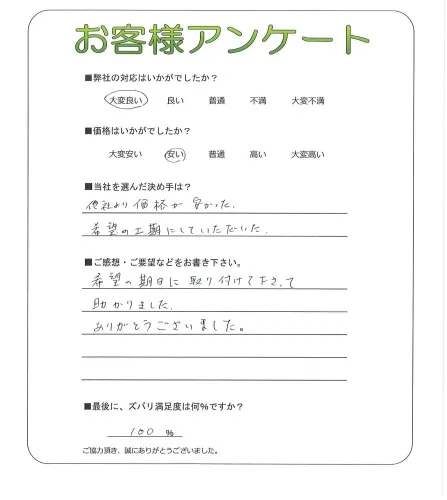 お客様アンケート
■弊社の対応はいかがでしたか？
大変良い 良い 普通 不満 大変不満
■価格はいかがでしたか？
大変安い 安い 普通 高い 大変高い
■当社を選んだ決め手は？
他社より価格が安かった.
希望の工期にしていただいた.
■ご感想・ご要望などをお書き下さい。
希望の期日に取り付けて下さって
助かりました.
ありがとうございました。
■最後に、ズバリ満足度は何％ですか？
100 %
ご協力頂き、誠にありがとうございました。